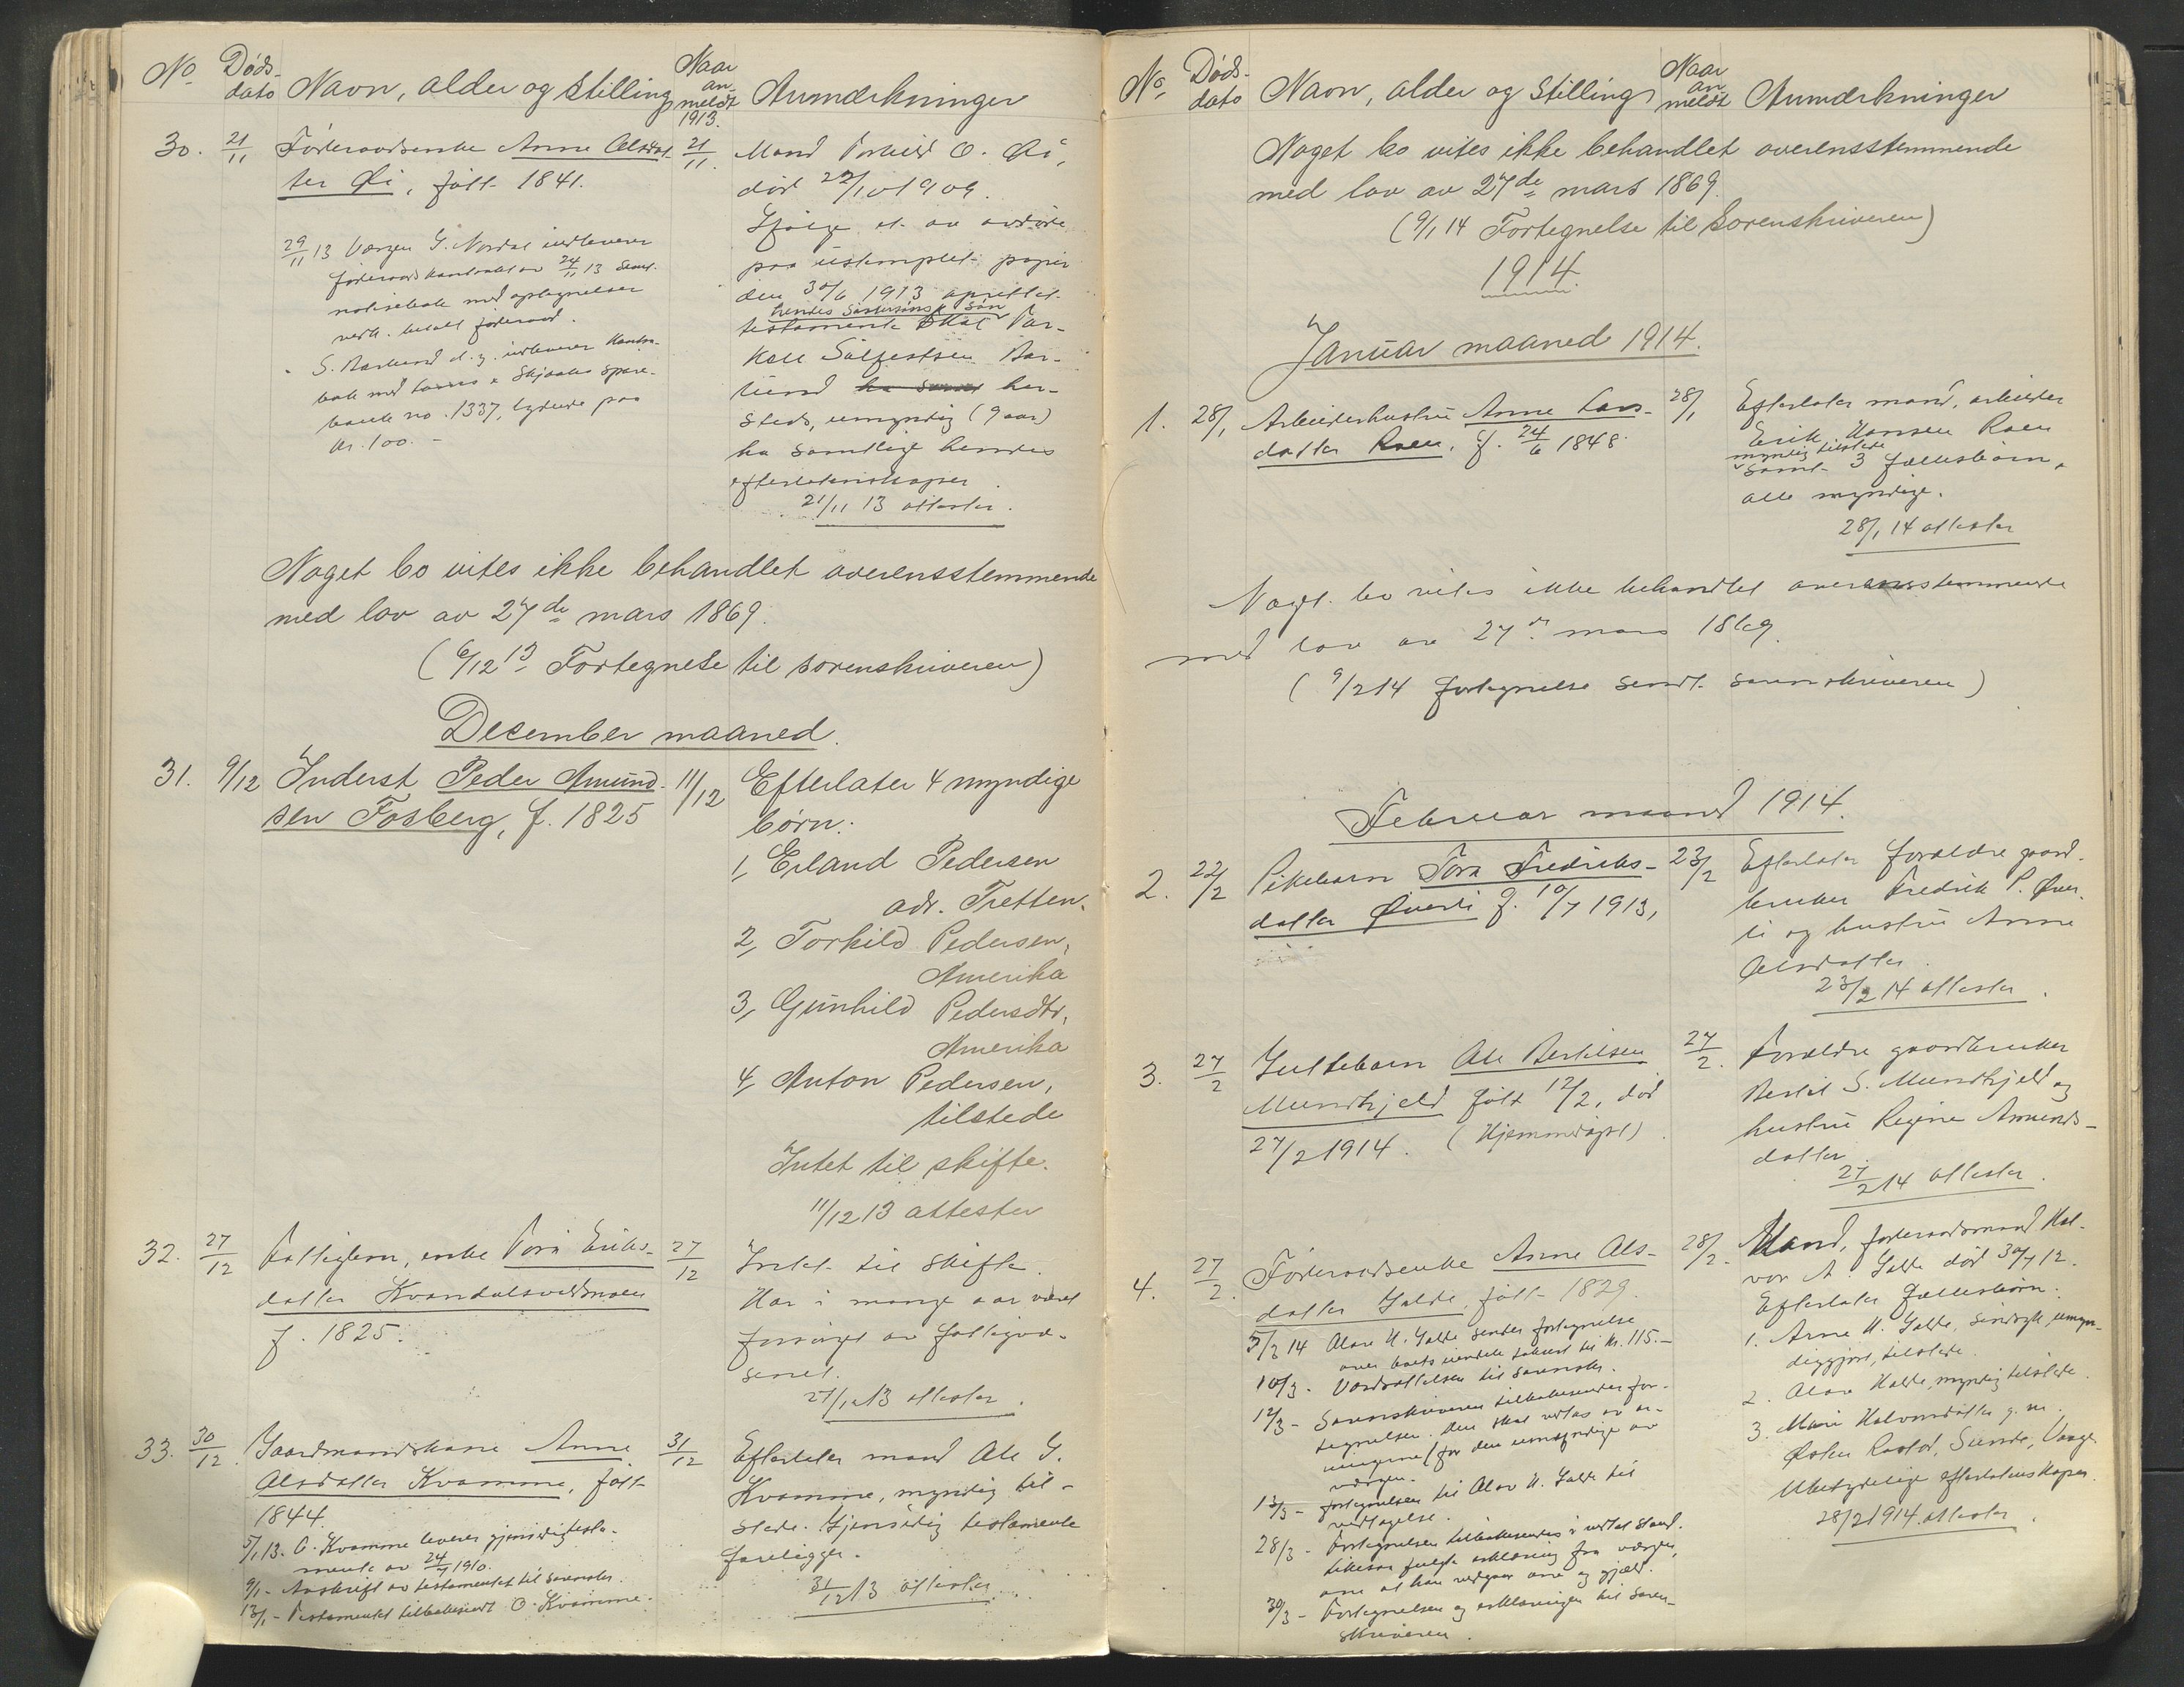 No. Døds-dato Navn, alder og stilling Naar an-meldt 1913. Anmærkninger
30. 21/11 Føderaadsenke Anne Olsdat-
ter Øi, født 1841.
29/11 13 Værgen G. Nordal indleverer
føderaadskontrakt av 24/11 13 samt
notisebok med optegnelser
vedk. betalt føderaad.
S. Aaslund d. y. indleverer kontra-
bok med Skjaaks spare-
bank no. 1337, lydende paa
kr. 100.-
21/11. Mand Torkild O. Øi,
død 22/10 1909.
Ifølge et av avdøde
paa ustemplet papir
den 30/6 1913 oprettet
hendes søstersøns søn
testamente skal Tor-
kell Sølfestsen
her-
steds, umyndig (9 aar)
ha samtlige hendes
efterlatenskaper.
21/11 13 attester.
Noget bo vites ikke behandlet overensstemmende
med lov av 27de mars 1869.
(6/12 13 Fortegnelse til sorenskriveren)
Desember maaned.
31. 9/12 Inderst Peder Amund-
sen Fosberg, f. 1825
11/12 Efterlater 4 myndige
børn:
1, Erland Pedersen
adr. Tretten.
2, Torkild Pedersen,
Amerika
3, Gunhild Pedersdtr,
Amerika
4, Anton Pedersen,
tilstede
Intet til skifte.
11/12 13 attester
32. 27/12 Fattiglem, enke Tora Eriks-
datter Kvandalsvoldmoen
f. 1825.
27/12 Intet til skifte.
Har i mange aar været
forsørget av fattigvæ-
senet.
27/12 13 attester.
33. 30/12 Gaardmandskone Anne
Olsdatter Kvamme, født
1844.
5/1 13. O. Kvamme leverer gjensidig testa-
mente av 24/7 1910.
9/1 - Avskrift av testamentet til sorenskr.
13/1 - Testamentet tilbakesendt O. Kvamme.
31/12 Efterlater mand Ole G.
Kvamme, myndig til-
stede. Gjensidig testamente
foreligger.
31/12 13 attester.
No. Døds-dato Navn, alder og stilling Naar an meldt Anmærkninger
Noget bo vites ikke behandlet overensstemmende
med lov av 27de mars 1869.
(9/1 14 Fortegnelse til Sorenskriveren)
1914.
Januar maaned 1914.
1. 28/1 Arbeiderhustru Anne Lars-
datter Roen, f. 24/6 1848.
28/1 Efterlater mand, arbeider
Erik Hansen Roen
myndig tilstede
samt 3 fællesbørn,
alle myndige.
28/1 14 attester
Noget bo vites ikke behandlet overensstemmende
med lov av 27de mars 1869.
(9/2 14 fortegnelse sendt sorenskriveren)
Februar maaned 1914.
2. 22/2 Pikebarn Tora Fredriks-
datter Øverli f. 10/7 1913,
23/2 Efterlater forældre gaard-
bruker Fredrik P. Øver-
li og hustru Anne
Olsdatter.
23/2 14 attester.
3. 27/2 Guttebarn Ole Bertilsen
Mundhjeld født 12/2, død
27/2 1914. (Hjemmedøpt)
27/2. Forældre gaardbruker
Bertil S. Mundhjeld og
hustru Regine Amunds-
datter.
27/2 14 attester.
4. 27/2. Føderaadsenke Anne Ols-
datter Galde, født 1829.
5/3 14 Olav H. Galde sender fortegnelse
over boets eiendele takseret til kr. 115.-
10/3. Værdsættelsen til sorenskr.
12/3 - Sorenskriveren tilbakesender for-
tegnelsen. Den skal vedtas av ar-
vingerne, for den umyndige av
værgen.
13/3 - fortegnelsen til Olav H. Galde til
vedtagelse.
28/3 - Fortegnelsen tilbakesendes i vedtat stand.
Likesaa fulgte erklæring fra værgen,
om at han vedgaar arv og gjæld.
30/3 - Fortegnelsen og erklæringen til soren-
skriveren.
28/2. Mand, føderaadsmand Hal-
vor A. Galde død 30/7 12.
Efterlater fællesbørn:
1. Arne H. Galde, sindssyk, umyn-
diggjort, tilstede.
2. Olav Galde, myndig tilstede.
3. Mari Halvorsdatter g. m.
Østen Sunde, Vaage
Ubetydelige efterlatenskaper.
28/2 1914 attester.